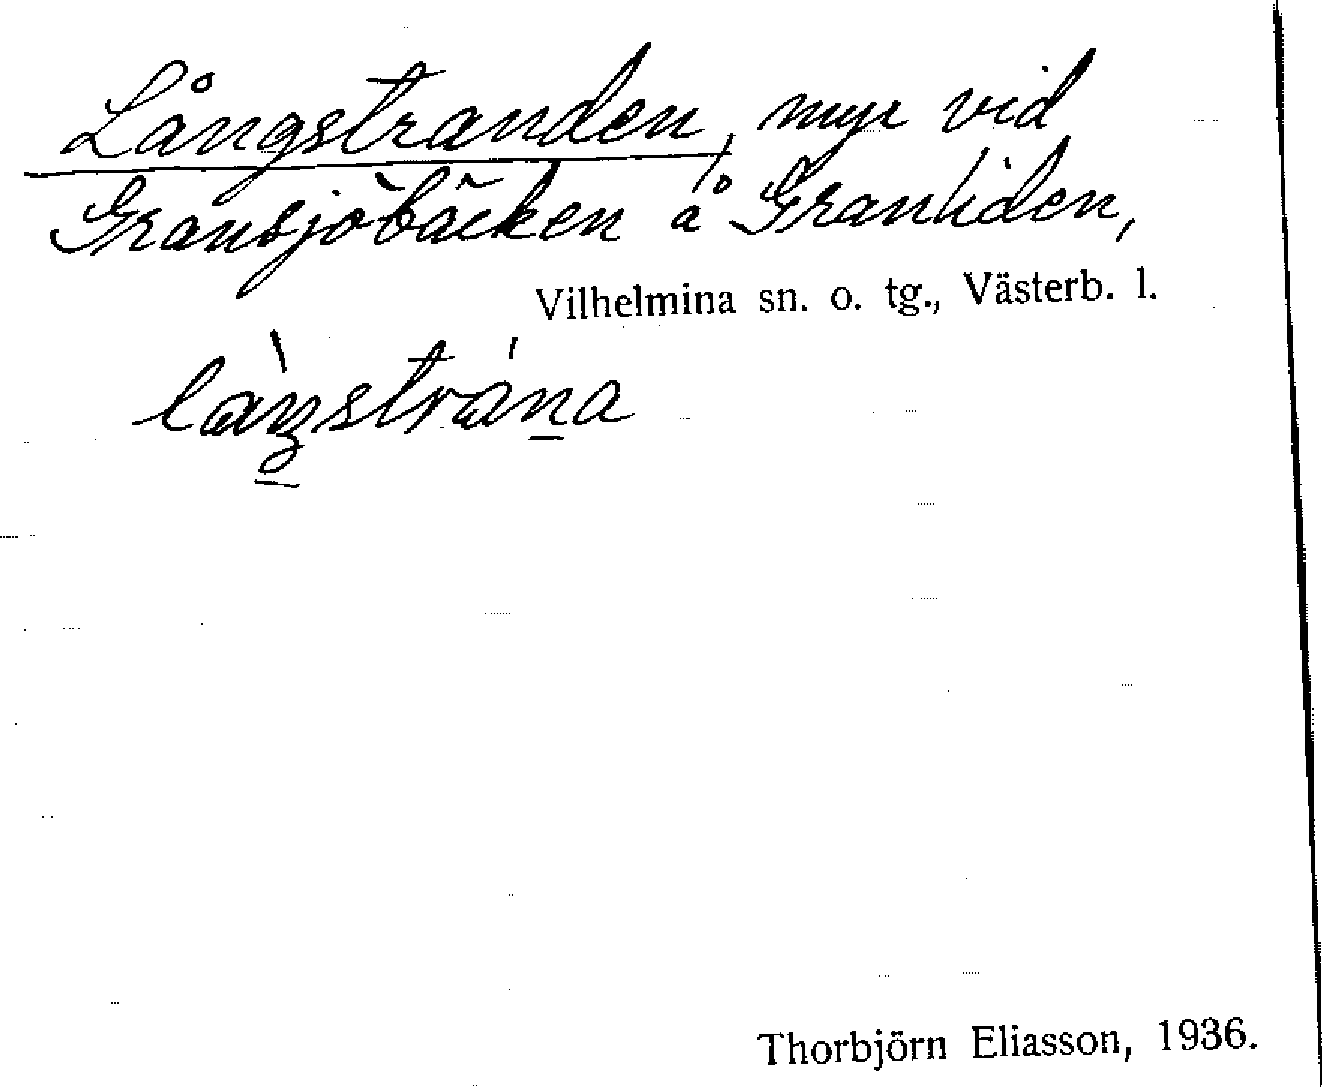 Långstranden, myr vid
Gransjöbäcken å Granliden,
Vilhelmina sn. o. tg., Västerb. l.
Thorbjörn Eliasson, 1936.